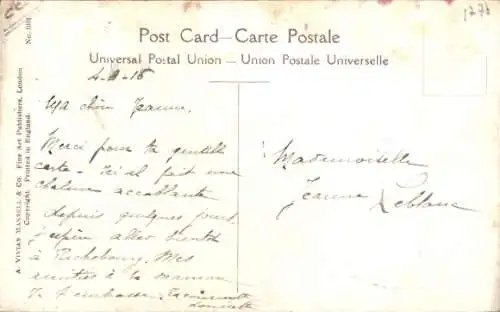 1776
Post Card—Carte Postale
Universal Postal Union — Union Postale Universelle
4-8-15
Ma chère Jeanne.
Merci pour ta gentille
carte - Ici il fait une
chaleur accablante
depuis quelques jours.
J'espère aller bientôt
à Richebourg. Mes
amitiés à ta maman
Je t'embrasse.
Mademoiselle
Jeanne Leblanc
A. Vivian Mansell & Co. Fine Art Publishers, London
Copyright. Printed in England.